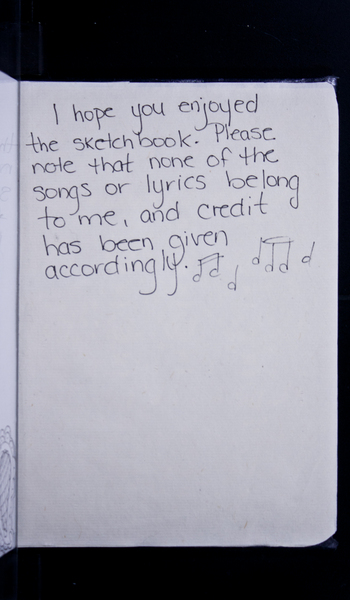 I hope you enjoyed
the sketchbook. Please
note that none of the
songs or lyrics belong
to me, and credit
has been given
accordingly.